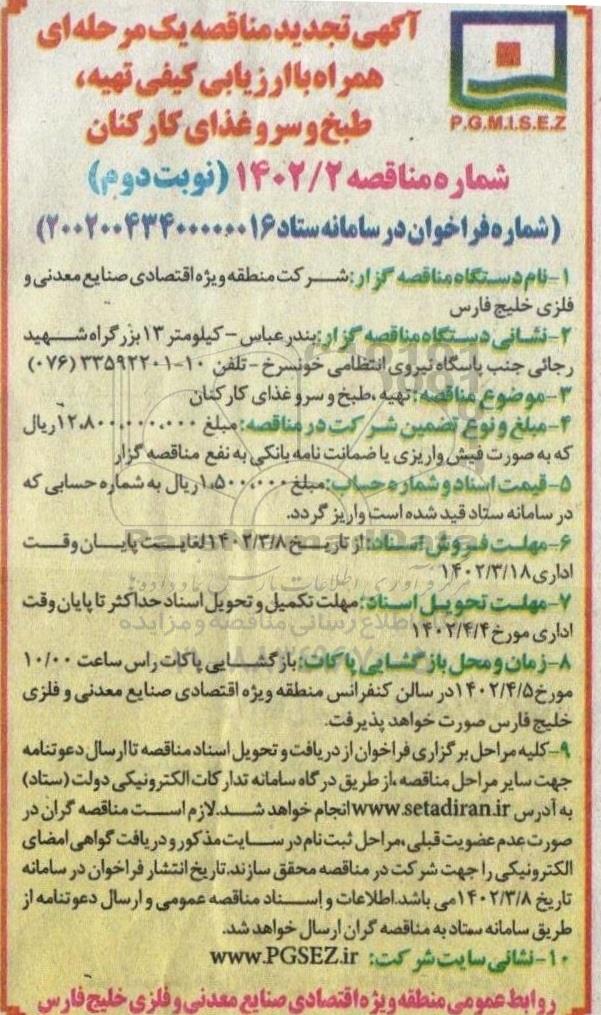 آگهی تجدید مناقصه یک مرحله‌ای
همراه با ارزیابی کیفی تهیه،
طبخ و سرو غذای کارکنان
P.G.M.I.S.E.Z
شماره مناقصه ۱۴۰۲/۲ (نوبت دوم)
(شماره فراخوان در سامانه ستاد ۲۰۰۲۰۰۴۳۴۰۰۰۰۰۱۶)
۱-نام دستگاه مناقصه گزار: شرکت منطقه ویژه اقتصادی صنایع معدنی و
فلزی خلیج فارس
۲-نشانی دستگاه مناقصه گزار: بندرعباس – کیلومتر ۱۳ بزرگراه شهید
رجائی جنب پاسگاه نیروی انتظامی خونسرخ - تلفن ۱۰-۳۳۵۹۲۲۰۱ (۰۷۶)
۳-موضوع مناقصه: تهیه ،طبخ و سرو غذای کارکنان
۴-مبلغ و نوع تضمین شرکت در مناقصه: مبلغ ۱۲،۸۰۰،۰۰۰،۰۰۰ ریال
که به صورت فیش واریزی یا ضمانت نامه بانکی به نفع مناقصه گزار
۵-قیمت اسناد و شماره حساب: مبلغ ۱،۵۰۰،۰۰۰ ریال به شماره حسابی که
در سامانه ستاد قید شده است واریز گردد.
۶-مهلت فروش اسناد: از تاریخ ۱۴۰۲/۳/۸ لغایت پایان وقت
اداری ۱۴۰۲/۳/۱۸
۷-مهلت تحویل اسناد: مهلت تکمیل و تحویل اسناد حداکثر تا پایان وقت
اداری مورخ ۱۴۰۲/۴/۴
۸-زمان و محل بازگشایی پاکات: بازگشایی پاکات راس ساعت ۱۰/۰۰
مورخ ۱۴۰۲/۴/۵ در سالن کنفرانس منطقه ویژه اقتصادی صنایع معدنی و فلزی
خلیج فارس صورت خواهد پذیرفت.
۹-کلیه مراحل برگزاری فراخوان از دریافت و تحویل اسناد مناقصه تا ارسال دعوتنامه
جهت سایر مراحل مناقصه ،از طریق درگاه سامانه تدارکات الکترونیکی دولت (ستاد)
به آدرس www.setadiran.ir انجام خواهد شد.لازم است مناقصه گران در
صورت عدم عضویت قبلی ،مراحل ثبت نام در سایت مذکور و دریافت گواهی امضای
الکترونیکی را جهت شرکت در مناقصه محقق سازند.تاریخ انتشار فراخوان در سامانه
تاریخ ۱۴۰۲/۳/۸ می باشد.اطلاعات و اسناد مناقصه عمومی و ارسال دعوتنامه از
طریق سامانه ستاد به مناقصه گران ارسال خواهد شد.
۱۰-نشانی سایت شرکت: www.PGSEZ.ir
روابط عمومی منطقه ویژه اقتصادی صنایع معدنی و فلزی خلیج فارس